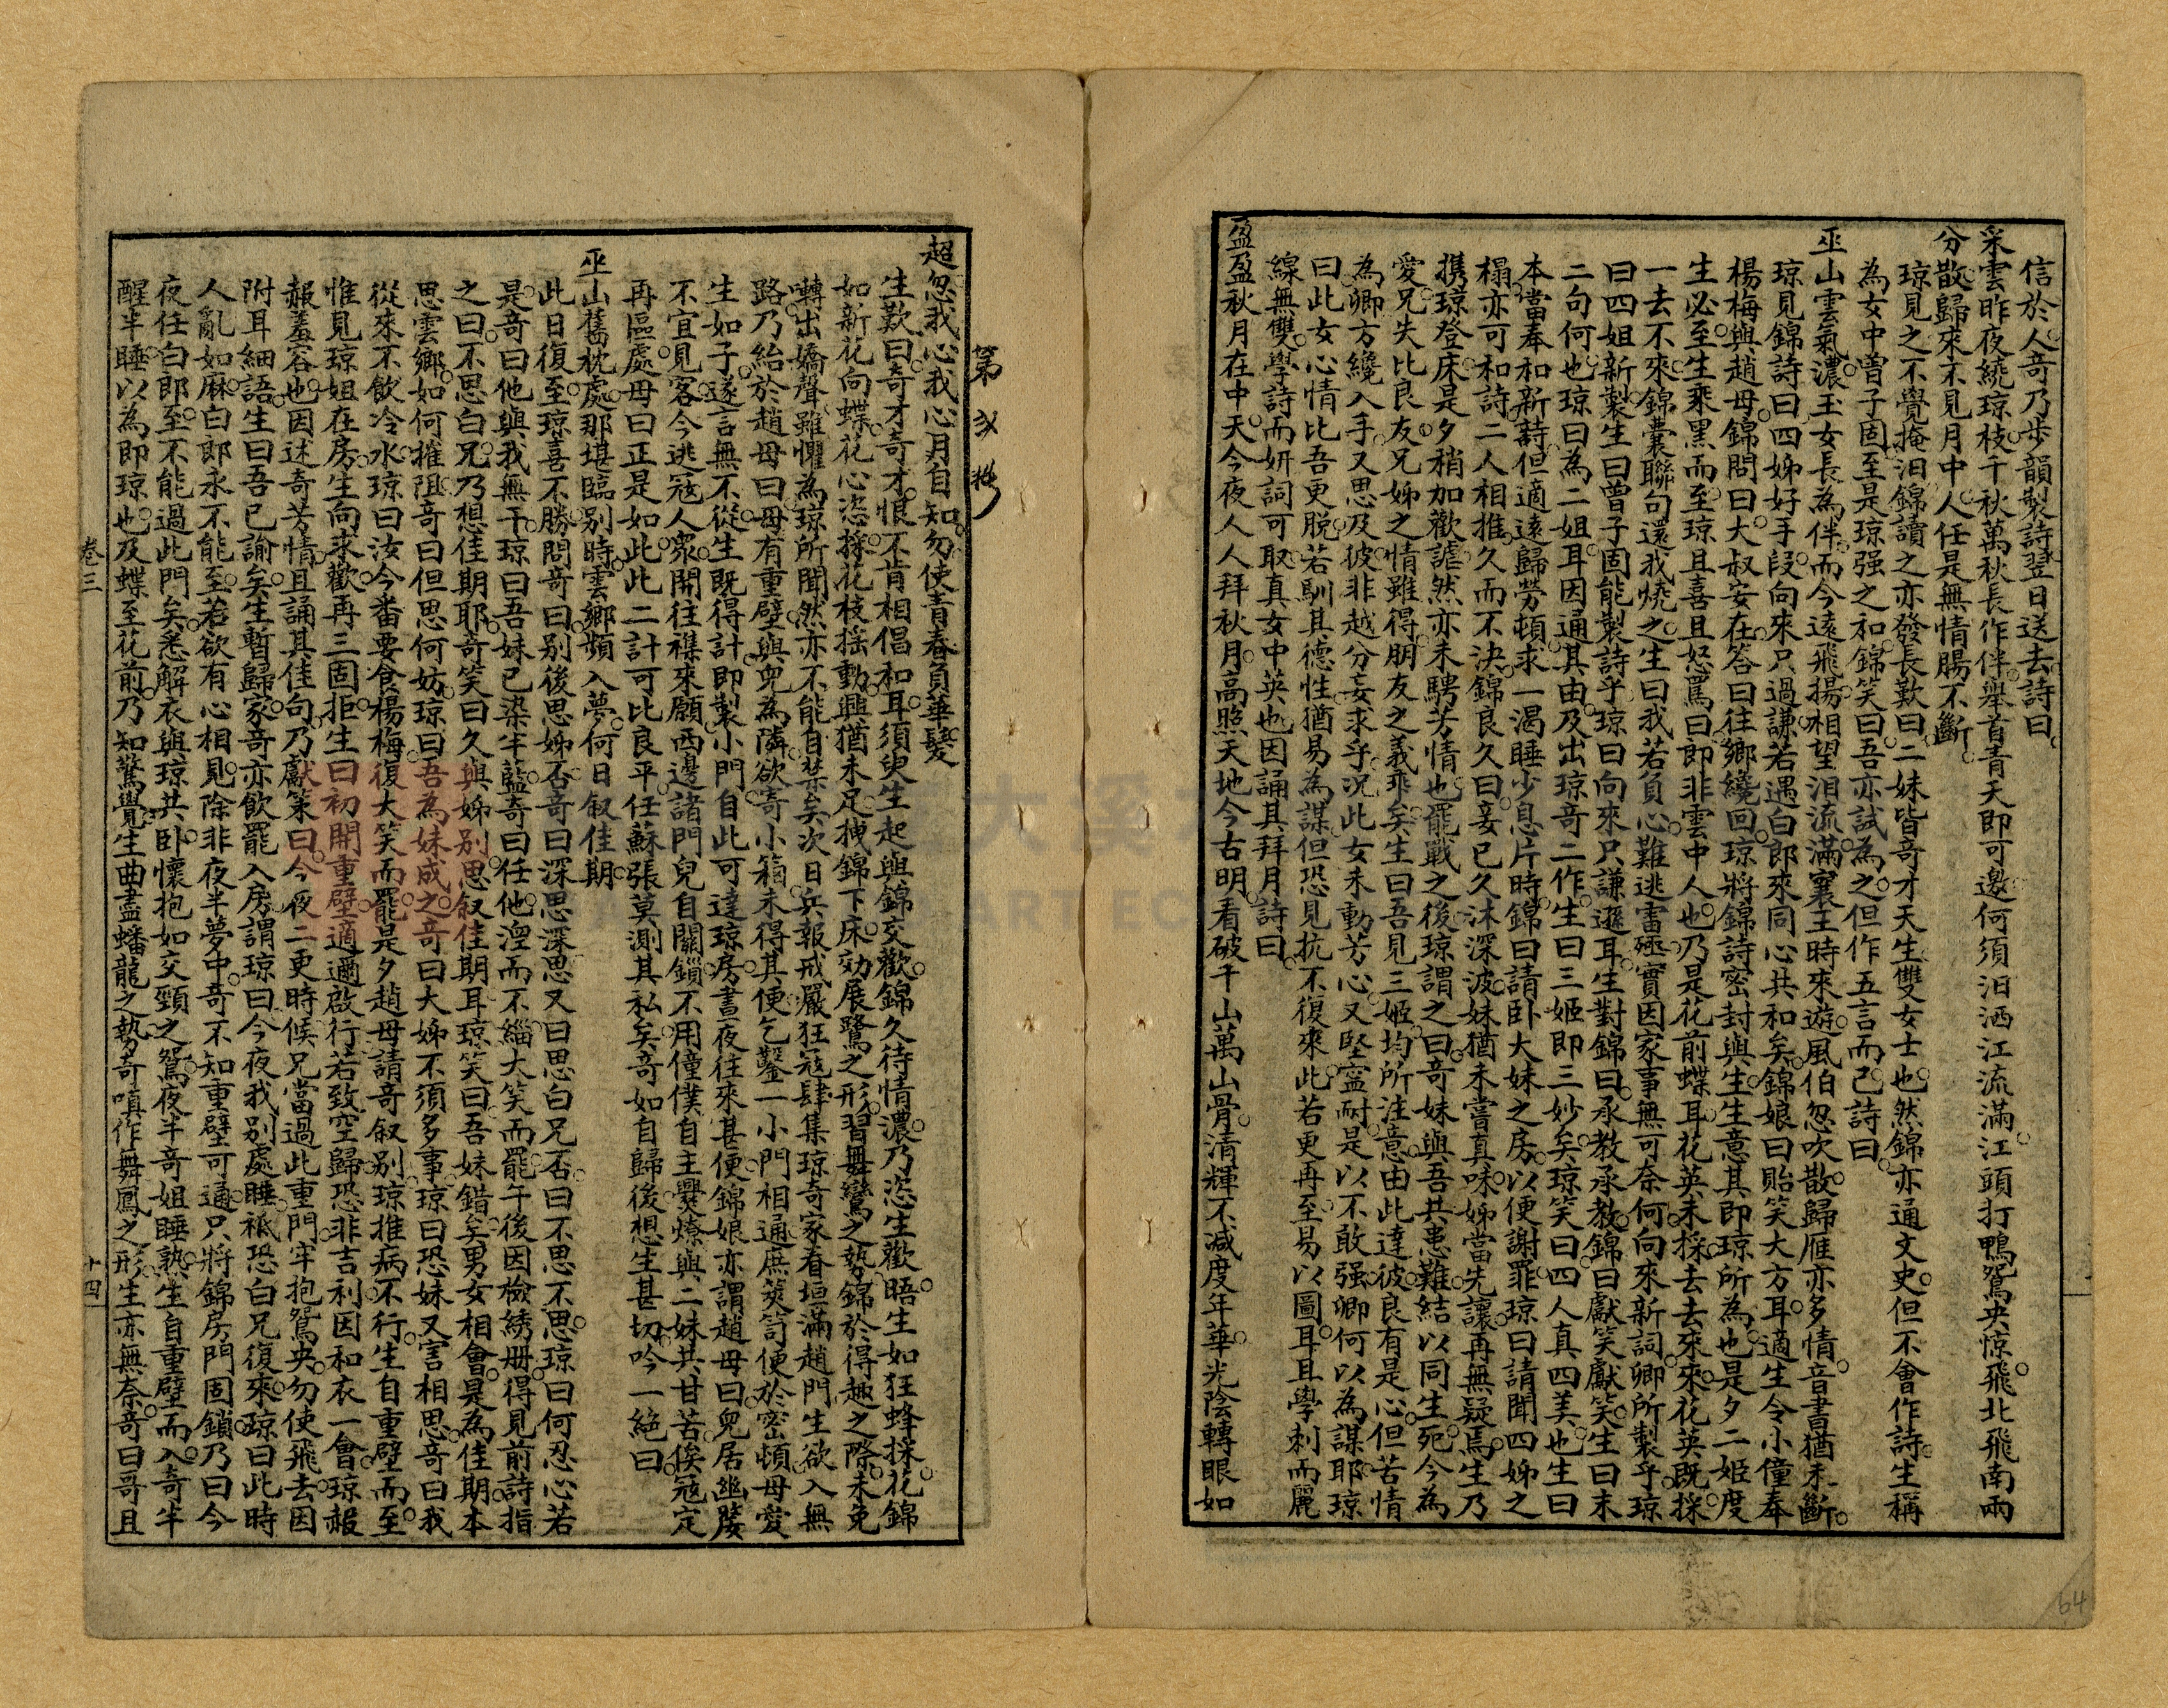 信於人奇乃步韻製詩翌日送去詩曰
采雲昨夜繞瓊枝千秋萬秋長作伴舉首青天即可邀何須泪洒江流滿江頭打鴨鴛央惊飛北飛南兩
分散歸來不見月中人任是無情腸不斷
瓊見之不覺掩泪錦讀之亦發長歎曰二妹皆奇才天生雙女士也然錦亦通文史但不會作詩生稱
為女中曾子固至是琼强之和錦笑曰吾亦試為之但作五言而已詩曰
巫山雲氣濃玉女長為伴而今遠飛揚相望泪流滿襄王時來遊風伯忽吹散歸雁亦多情音書猶未斷
琼見錦詩曰四姊好手段向來只過謙若遇白郎來同心共和矣錦娘曰貽笑大方耳適生令小僮奉
楊梅與趙母錦問曰大叔安在答曰往鄉纔回琼將錦詩密封與生生意其即琼所為也是夕二姬度
生必至生乘黑而至琼且喜且怒罵曰即非雲中人也乃是花前蝶耳花英未採去去來來花英既採
一去不來錦囊聯句還我燒之生曰我若負心難逃雷殛實因家事無可奈何向來新詞卿所製乎琼
曰四姐新製生曰曾子固能製詩乎琼曰向來只謙遜耳生對錦曰承教承教錦曰獻笑獻笑生曰末
二句何也琼曰為二姐耳因通其由及出琼奇二作生曰三姬即三妙矣琼笑曰四人真四美也生曰
本當奉和新詩但適遠歸勞頓求一渴睡少息片時錦曰請卧大妹之房以便謝罪琼曰請聞四姊之
榻亦可和詩二人相推久而不決錦良久曰妾已久沐深波妹猶未嘗真味姊當先讓再無疑焉生乃
携琼登床是夕稍加歡謔然亦未騁芳情也罷戰之後琼謂之曰奇妹與吾共患難結以同生死今為
愛兄失比良友兄姊之情雖得朋友之義乖矣生曰吾見三姬均所注意由此達彼良有是心但苦情
為卿方纔入手又思及彼非越分妄求乎况此女未動芳心又堅寍耐是以不敢强卿何以為謀耶琼
曰此女心情比吾更脱若馴其德性猶易為謀但恐見抗不復來此若更再至易以圖耳且學刺而麗
線無雙學詩而妍詞可取真女中英也因誦其拜月詩曰
盈盈秋月在中天今夜人人拜秋月高照天地今古明看破千山萬山骨清輝不减度年華光陰轉眼如
第 弎 拋
超忽我心我心月自知勿使青春負華髮
生歎曰奇才奇才恨不肯相倡和耳須臾生起與錦交歡錦久待情濃乃恣生歡晤生如狂蜂採花錦
如新花向蝶花心恣採花枝揺動興猶未足拽錦下床効展鷺之形習舞鸞之勢錦於得趣之際未免
囀出嬌聲雖懼為琼所聞然亦不能自禁矣次日兵報戒嚴狂寇肆集琼奇家眷垣滿趙門生欲入無
路乃紿於趙母曰母有重壁與兒為隣欲寄小箱未得其便乞鑿一小門相通庶筴笥便於密頓母愛
生如子遂言無不從生既得計即製小門自此可達琼房晝夜往來甚便錦娘亦謂趙母曰兒居幽嫠
不宜見客今逃寇人衆開往襍來願西邊諸門兒自關鎖不用僮僕自主爨燎與二妹共甘苦俟寇定
再區處母曰正是如此此二計可比良平任蘇張莫測其私矣奇如自歸後想生甚切吟一絶曰
巫山舊枕處那堪臨别時雲鄉頻入夢何日叙佳期
此日復至琼喜不勝問奇曰别後思姊否奇曰深思深思又曰思白兄否曰不思不思琼曰何忍心若
是奇曰他與我無干琼曰吾妹已染半藍奇曰任他湼而不緇大笑而罷午後因檢綉册得見前詩指
之曰不思白兄乃想佳期耶奇笑曰久與姊别思叙佳期耳琼笑曰吾妹錯矣男女相會是為佳期本
思雲鄉如何摧阻奇曰但思何妨琼曰吾為妹成之奇曰大姊不須多事琼曰恐妹又害相思奇曰我
從來不飲冷水琼曰汝今番要食楊梅復大笑而罷是夕趙母請奇叙别琼推病不行生自重壁而至
惟見琼姐在房生向求歡再三固拒生曰初開重壁適邇啟行若致空歸恐非吉利因和衣一會琼赧
赧羞容也因述奇芳情且誦其佳句乃獻策曰今夜二更時候兄當過此重門牢抱鴛央勿使飛去因
附耳細語生曰吾已諭矣生暫歸家奇亦飲罷入房謂琼曰今夜我别處睡祗恐白兄復來琼曰此時
人亂如麻白郎永不能至若欲有心相見除非夜半夢中奇不知重壁可通只將錦房門固鎖乃曰今
夜任白郎至不能過此門矣悉解衣與琼共卧懷抱如交頸之鴛夜半奇姐睡熟生自重壁而入奇半
醒半睡以為即琼也及蝶至花前乃知驚覺生曲盡蟠龍之勢奇嗔作舞鳳之形生亦無奈奇曰哥且
卷三
十四
64